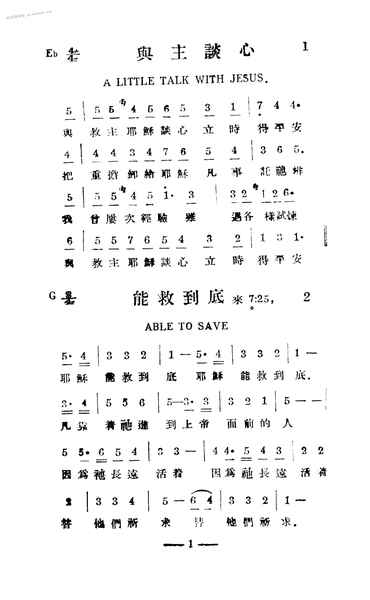 Eb 與主談心 1
A LITTLE TALK WITH JESUS.
5 | 5 5 4 5 6 5 3 1 | 7 4 4
與 救主耶穌談心 立時 得平安
4 | 4 4 3 4 7 6 5 4 | 3 6 5
把 重擔卸給耶穌 凡事 託祂辦
5 | 5 5 4 5 1 3 | 3 2 1 2 6
我 曾屢次經驗 雖 遇各樣試煉
6 | 5 5 7 6 5 4 3 2 | 1 3 1
與 救主耶穌談心 立時 得平安
G 能救到底 來 7:25, 2
ABLE TO SAVE
5 4 | 3 3 2 | 1 — 5 4 | 3 3 2 | 1 —
耶穌 能救到 底 耶穌 能救到底.
3 4 | 5 5 6 | 5 — 3 3 | 3 2 1 | 2 —
凡靠 着祂進 到上帝 面前的人
5 5 6 5 4 | 3 3 — | 4 4 5 4 3 | 2 2
因爲祂長遠 活着 因爲祂長遠 活着
2 | 3 3 4 | 5 — 6 4 | 3 3 2 | 1 —
替 他們祈 求 替 他們祈求.
— 1 —